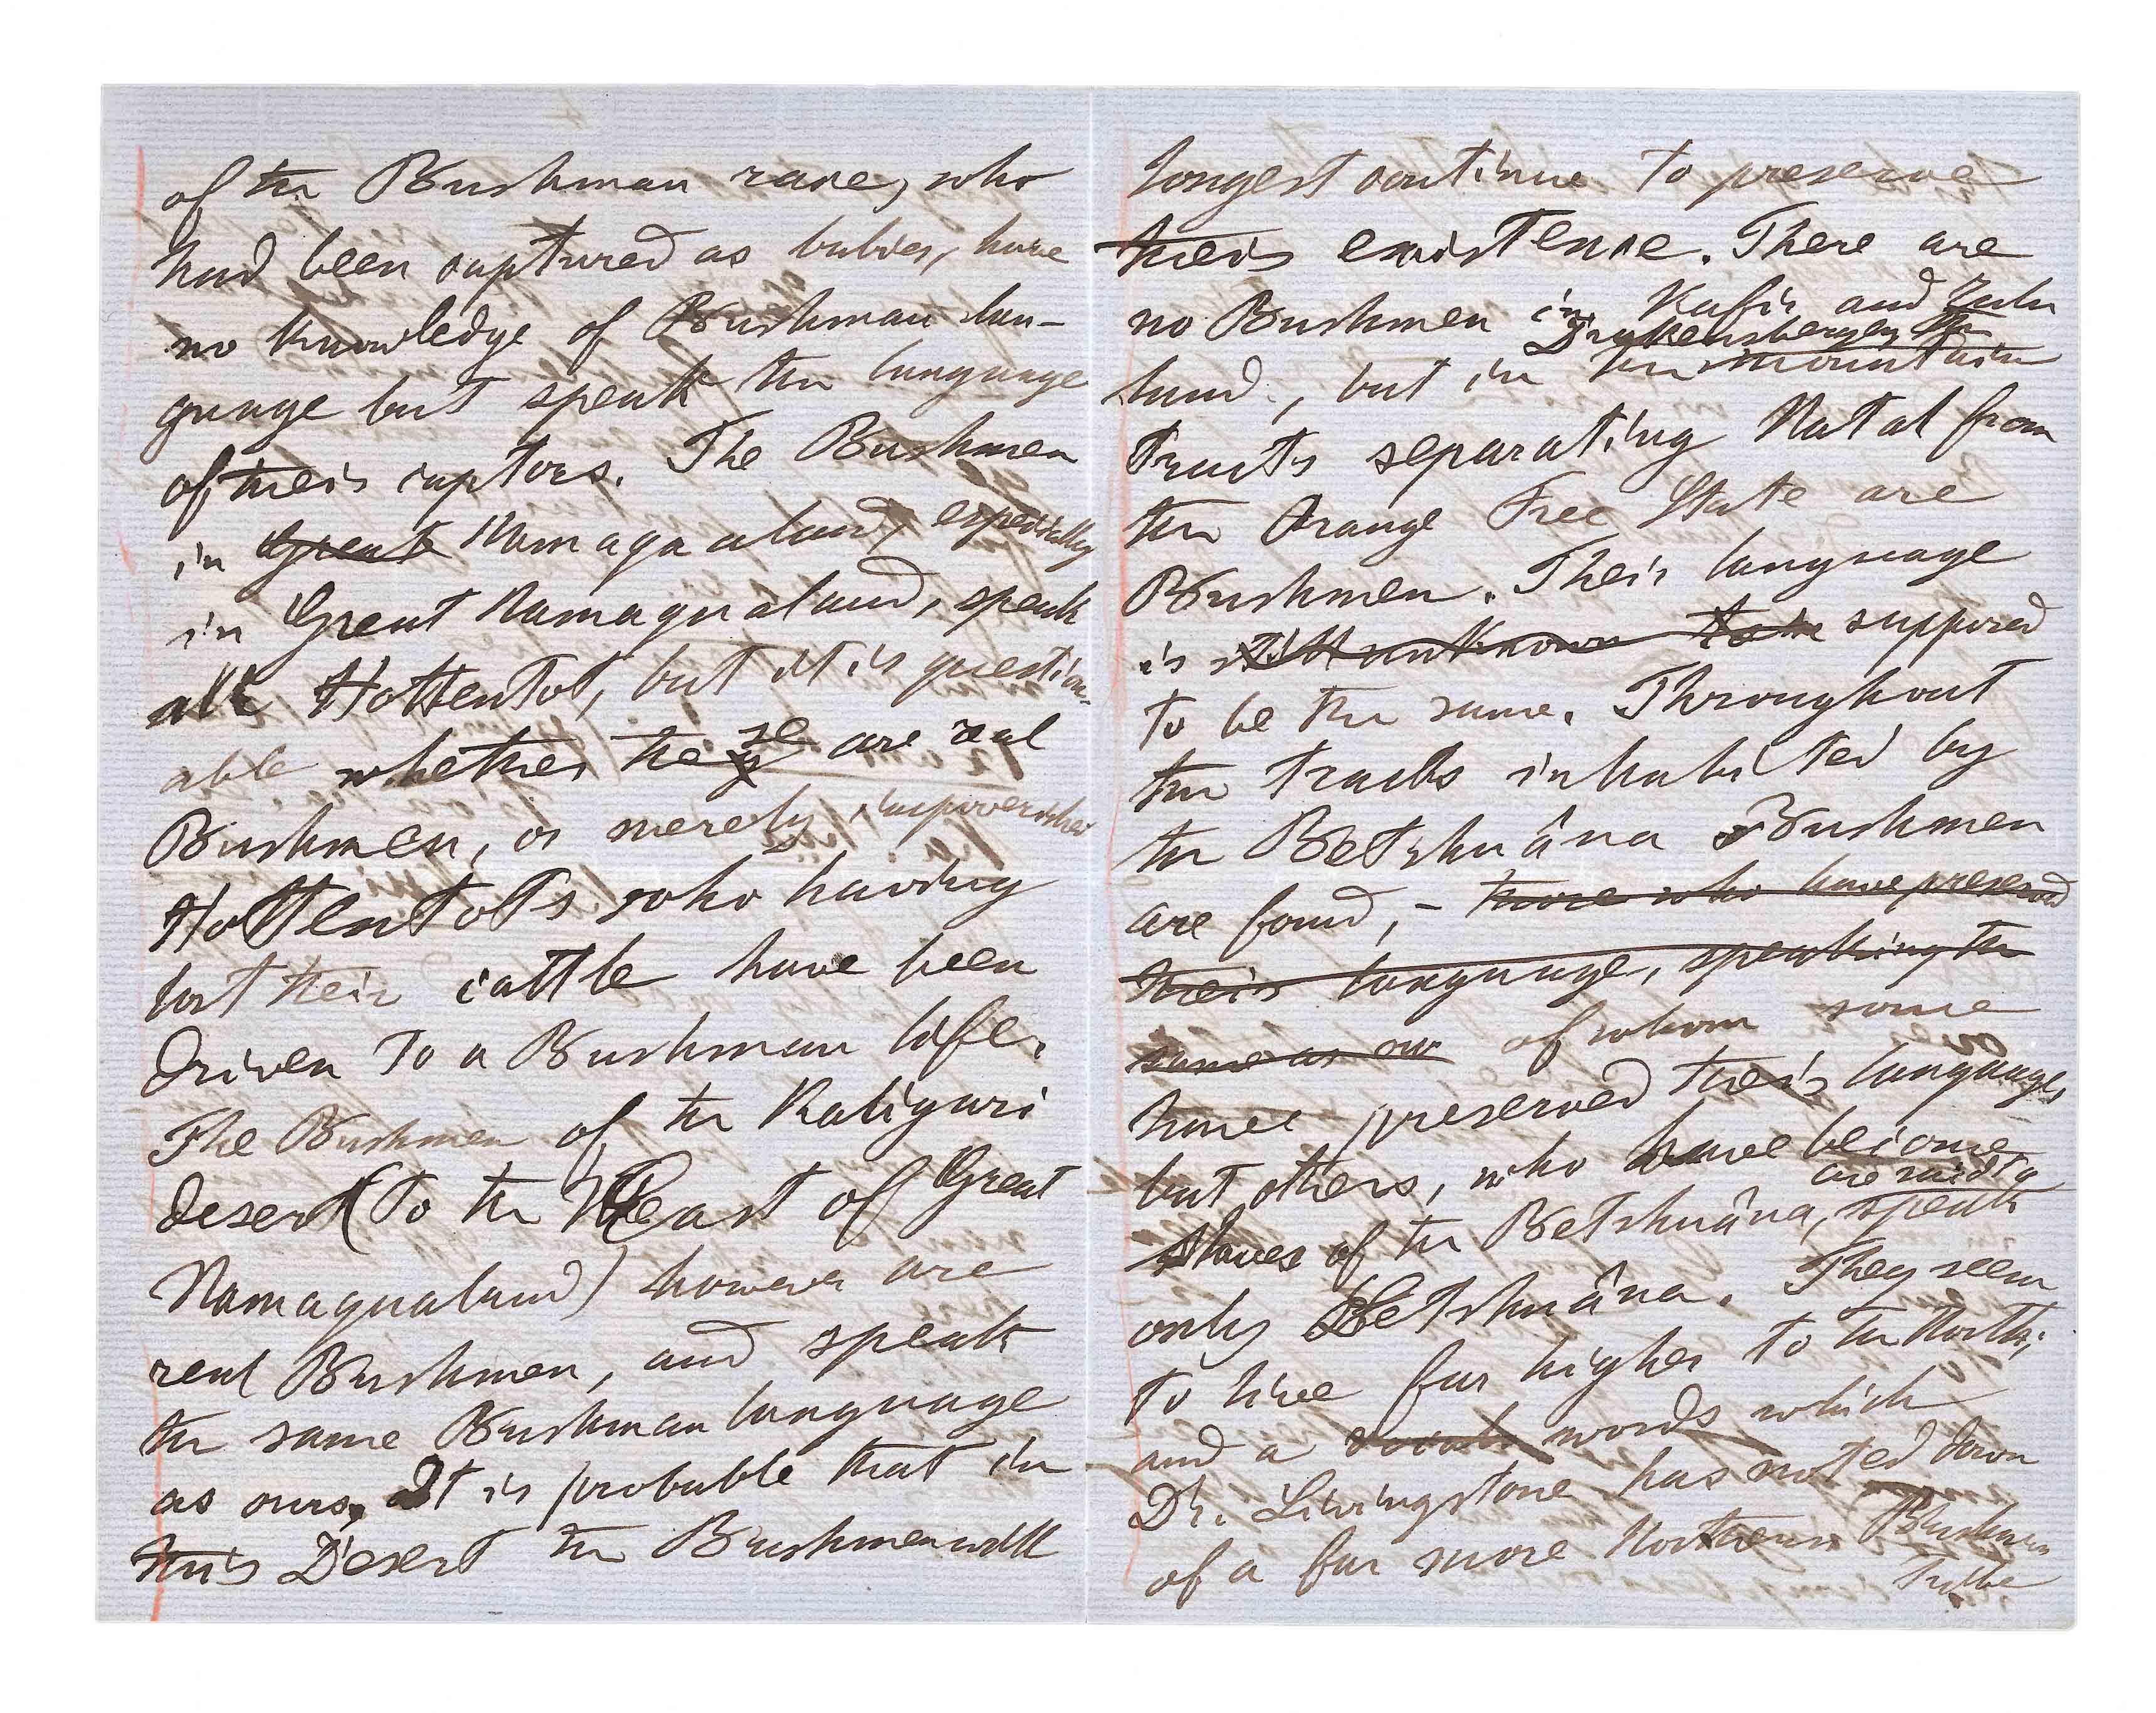 of the Bushman race, who
had been captured as babies, have
no knowledge of Bushman lan-
guage but speak the language
of their captors. The Bushmen
in Great Namaqualand, especially
in Great Namaqualand, speak
all Hottentot, but it is question-
able whether these are real
Bushmen, or merely impoverished
Hottentots who having
lost their cattle have been
driven to a Bushman life.
The Bushmen of the Kaligari
desert (to the East of Great
Namaqualand) however are
real Bushmen, and speak
the same Bushman language
as ours. It is probable that in
this Desert the Bushmen will
longest continue to preserve
their existence. There are
no Bushmen in Kafir and Zulu
Drakensbergen, the
land, but in the mountain
tracts separating Natal from
the Orange Free State are
Bushmen. Their language
is still unknown to be supposed
to be the same. Throughout
the tracts inhabited by
the Betshuâna Bushmen
are found, - those who have preserved
their language, speaking the
same as our of whom some
have preserved their language,
but others, who have become
are said to
slaves of the Betshuâna, speak
only Betshuâna. They seem
to live far higher to the North;
and a words which
Dr. Livingstone has noted down
of a far more Northern Bushman
Tribe